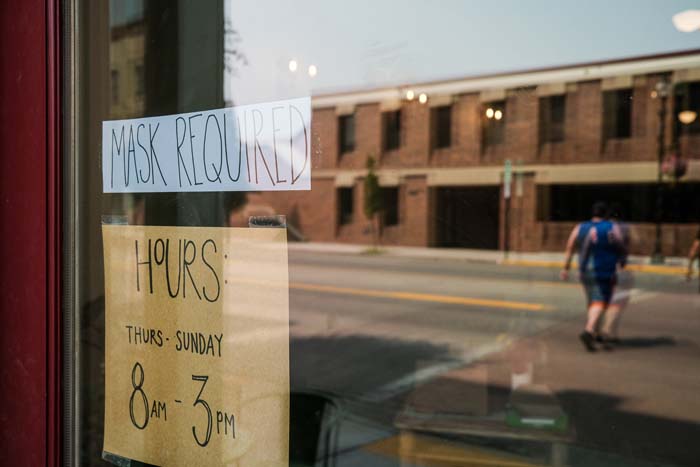 MASK REQUIRED
HOURS:
THURS - SUNDAY
8AM - 3PM